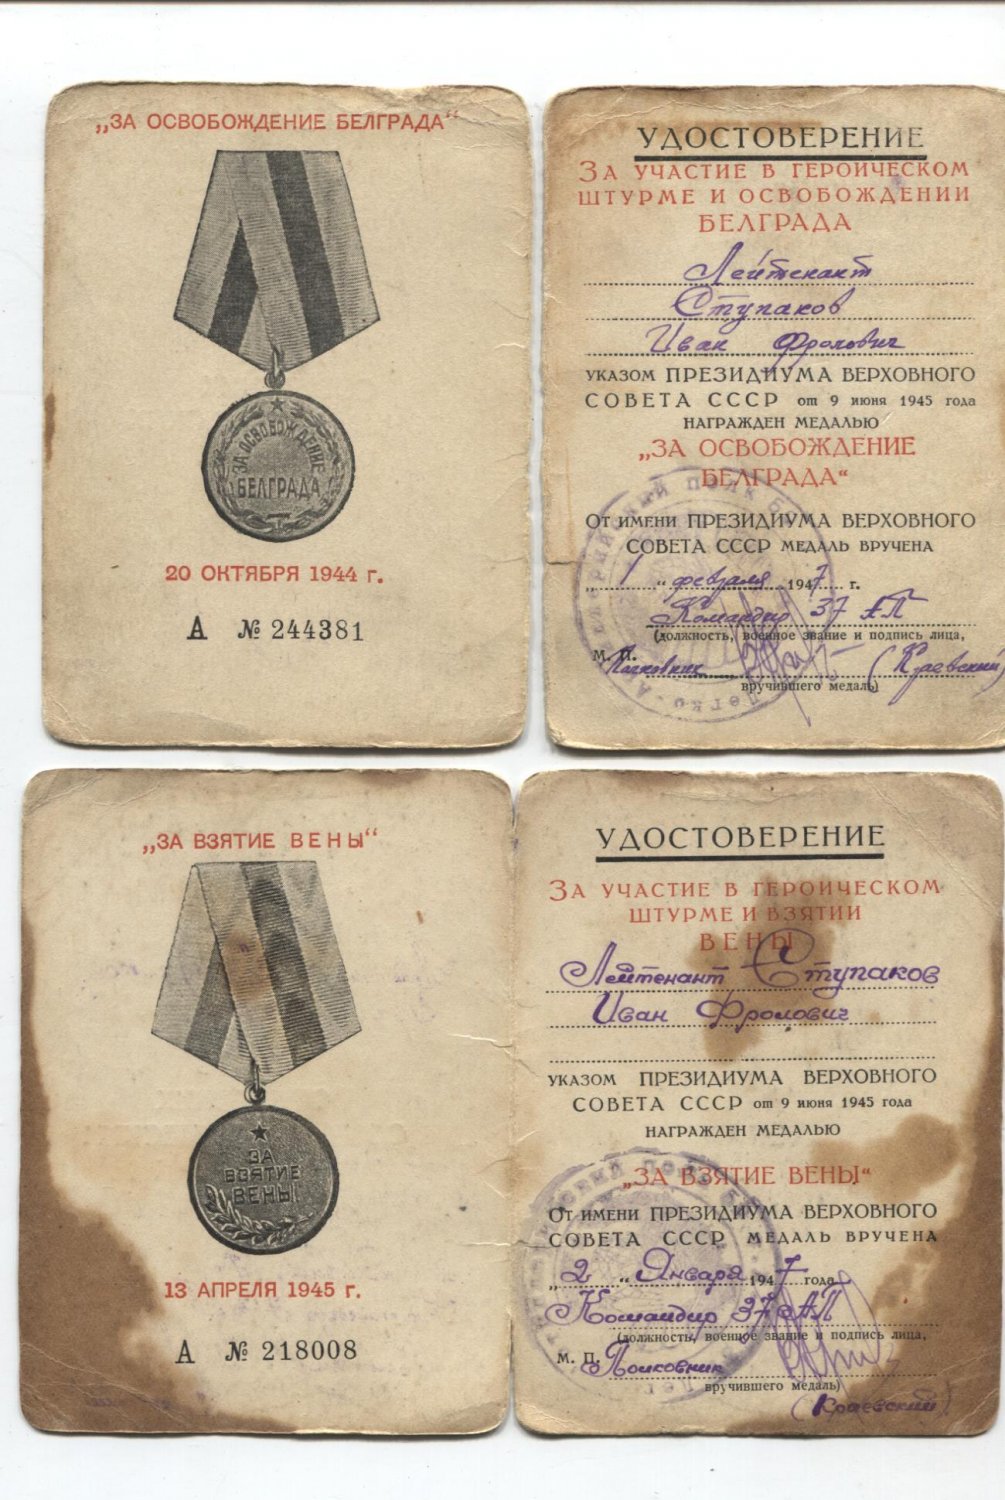 „ЗА ОСВОБОЖДЕНИЕ БЕЛГРАДА“
ЗА ОСВОБОЖДЕНИЕ
БЕЛГРАДА
20 ОКТЯБРЯ 1944 г.
А № 244381
УДОСТОВЕРЕНИЕ
ЗА УЧАСТИЕ В ГЕРОИЧЕСКОМ
ШТУРМЕ И ОСВОБОЖДЕНИИ
БЕЛГРАДА
Лейтенант
Ступаков
Иван Фролович
УКАЗОМ ПРЕЗИДИУМА ВЕРХОВНОГО
СОВЕТА СССР от 9 июня 1945 года
НАГРАЖДЕН МЕДАЛЬЮ
„ЗА ОСВОБОЖДЕНИЕ
БЕЛГРАДА“
ОТ ИМЕНИ ПРЕЗИДИУМА ВЕРХОВНОГО
СОВЕТА СССР МЕДАЛЬ ВРУЧЕНА
„1“ февраля 1947 г.
Командир 37 АП
(должность, военное звание и подпись лица,
М. П. Полковник (Краевский)
вручившего медаль)
„ЗА ВЗЯТИЕ ВЕНЫ“
ЗА
ВЗЯТИЕ
ВЕНЫ
13 АПРЕЛЯ 1945 г.
А № 218008
УДОСТОВЕРЕНИЕ
ЗА УЧАСТИЕ В ГЕРОИЧЕСКОМ
ШТУРМЕ И ВЗЯТИИ
ВЕНЫ
Лейтенант Ступаков
Иван Фролович
УКАЗОМ ПРЕЗИДИУМА ВЕРХОВНОГО
СОВЕТА СССР от 9 июня 1945 года
НАГРАЖДЕН МЕДАЛЬЮ
„ЗА ВЗЯТИЕ ВЕНЫ“
ОТ ИМЕНИ ПРЕЗИДИУМА ВЕРХОВНОГО
СОВЕТА СССР МЕДАЛЬ ВРУЧЕНА
„2“ Января 1947 года
Командир 37 АП
(должность, военное звание и подпись лица,
М. П. Полковник
вручившего медаль)
(Краевский)